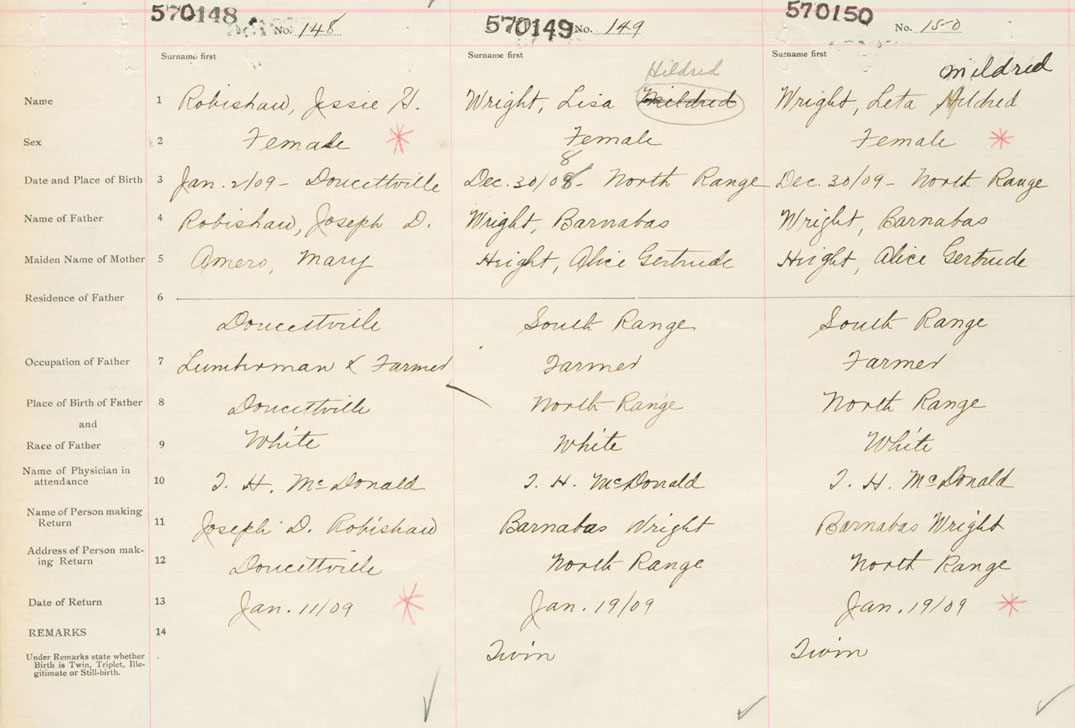 570148 No. 148 570149 No. 149 570150 No. 150
Surname first Surname first Surname first
Hildred mildred
Name 1 Robishaw, Jessie H. Wright, Lisa Mildred Wright, Leta Mildred
Sex 2 Female * Female Female *
8
Date and Place of Birth 3 Jan. 2/09 - Doucettville Dec. 30/08 - North Range Dec. 30/09 - North Range
Name of Father 4 Robishaw, Joseph D. Wright, Barnabas Wright, Barnabas
Maiden Name of Mother 5 Amero, Mary Hright, Alice Gertrude Hright, Alice Gertrude
Residence of Father 6
Doucettville South Range South Range
Occupation of Father 7 Lumberman & Farmer Farmer Farmer
Place of Birth of Father 8 Doucettville North Range North Range
and
Race of Father 9 White White White
Name of Physician in
attendance 10 J. H. McDonald J. H. McDonald J. H. McDonald
Name of Person making
Return 11 Joseph D. Robishaw Barnabas Wright Barnabas Wright
Address of Person mak-
ing Return 12 Doucettville North Range North Range
Date of Return 13 Jan. 11/09 * Jan. 19/09 Jan. 19/09 *
REMARKS 14
Under Remarks state whether
Birth is Twin, Triplet, Ille-
gitimate or Still-birth.
Twin Twin